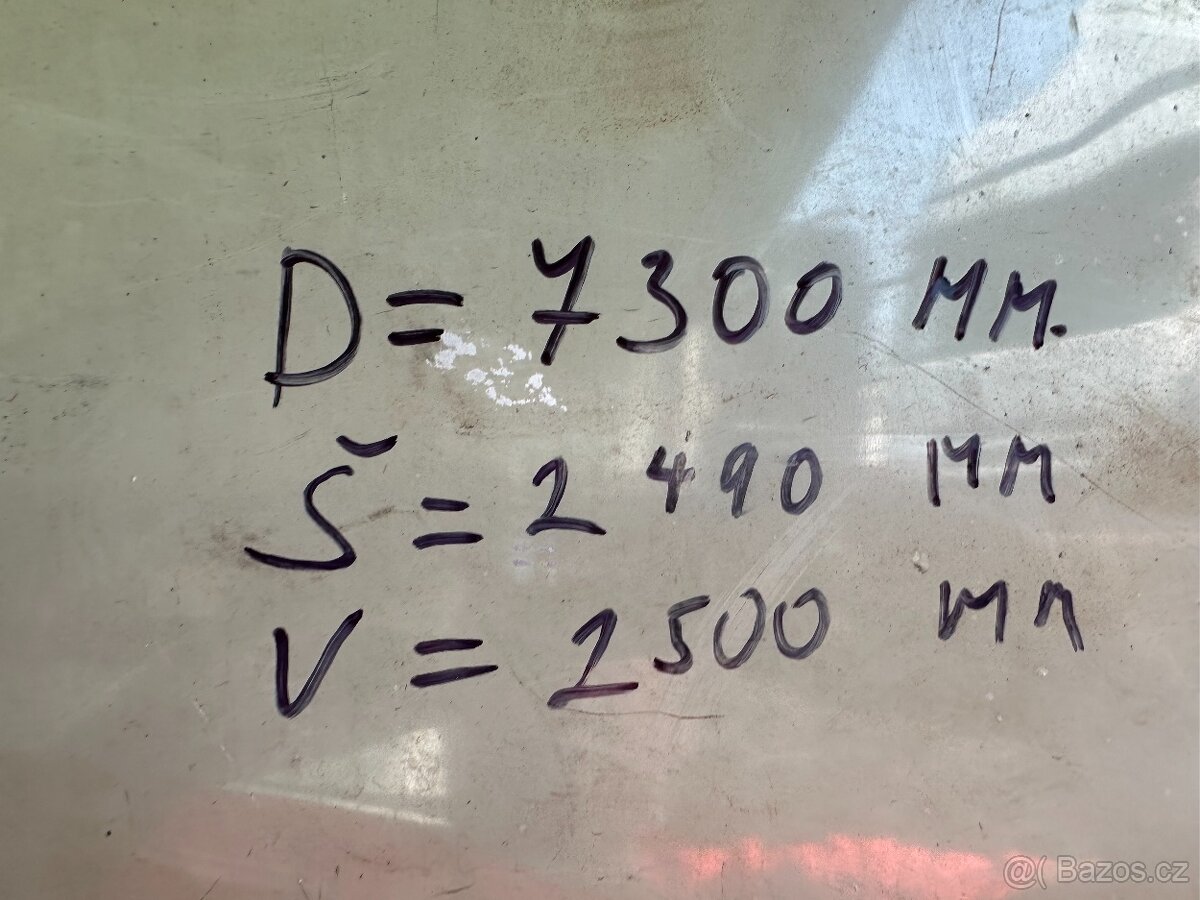 D = 7300 mm.
Š = 2490 mm
V = 2500 mm
@( Bazos.cz